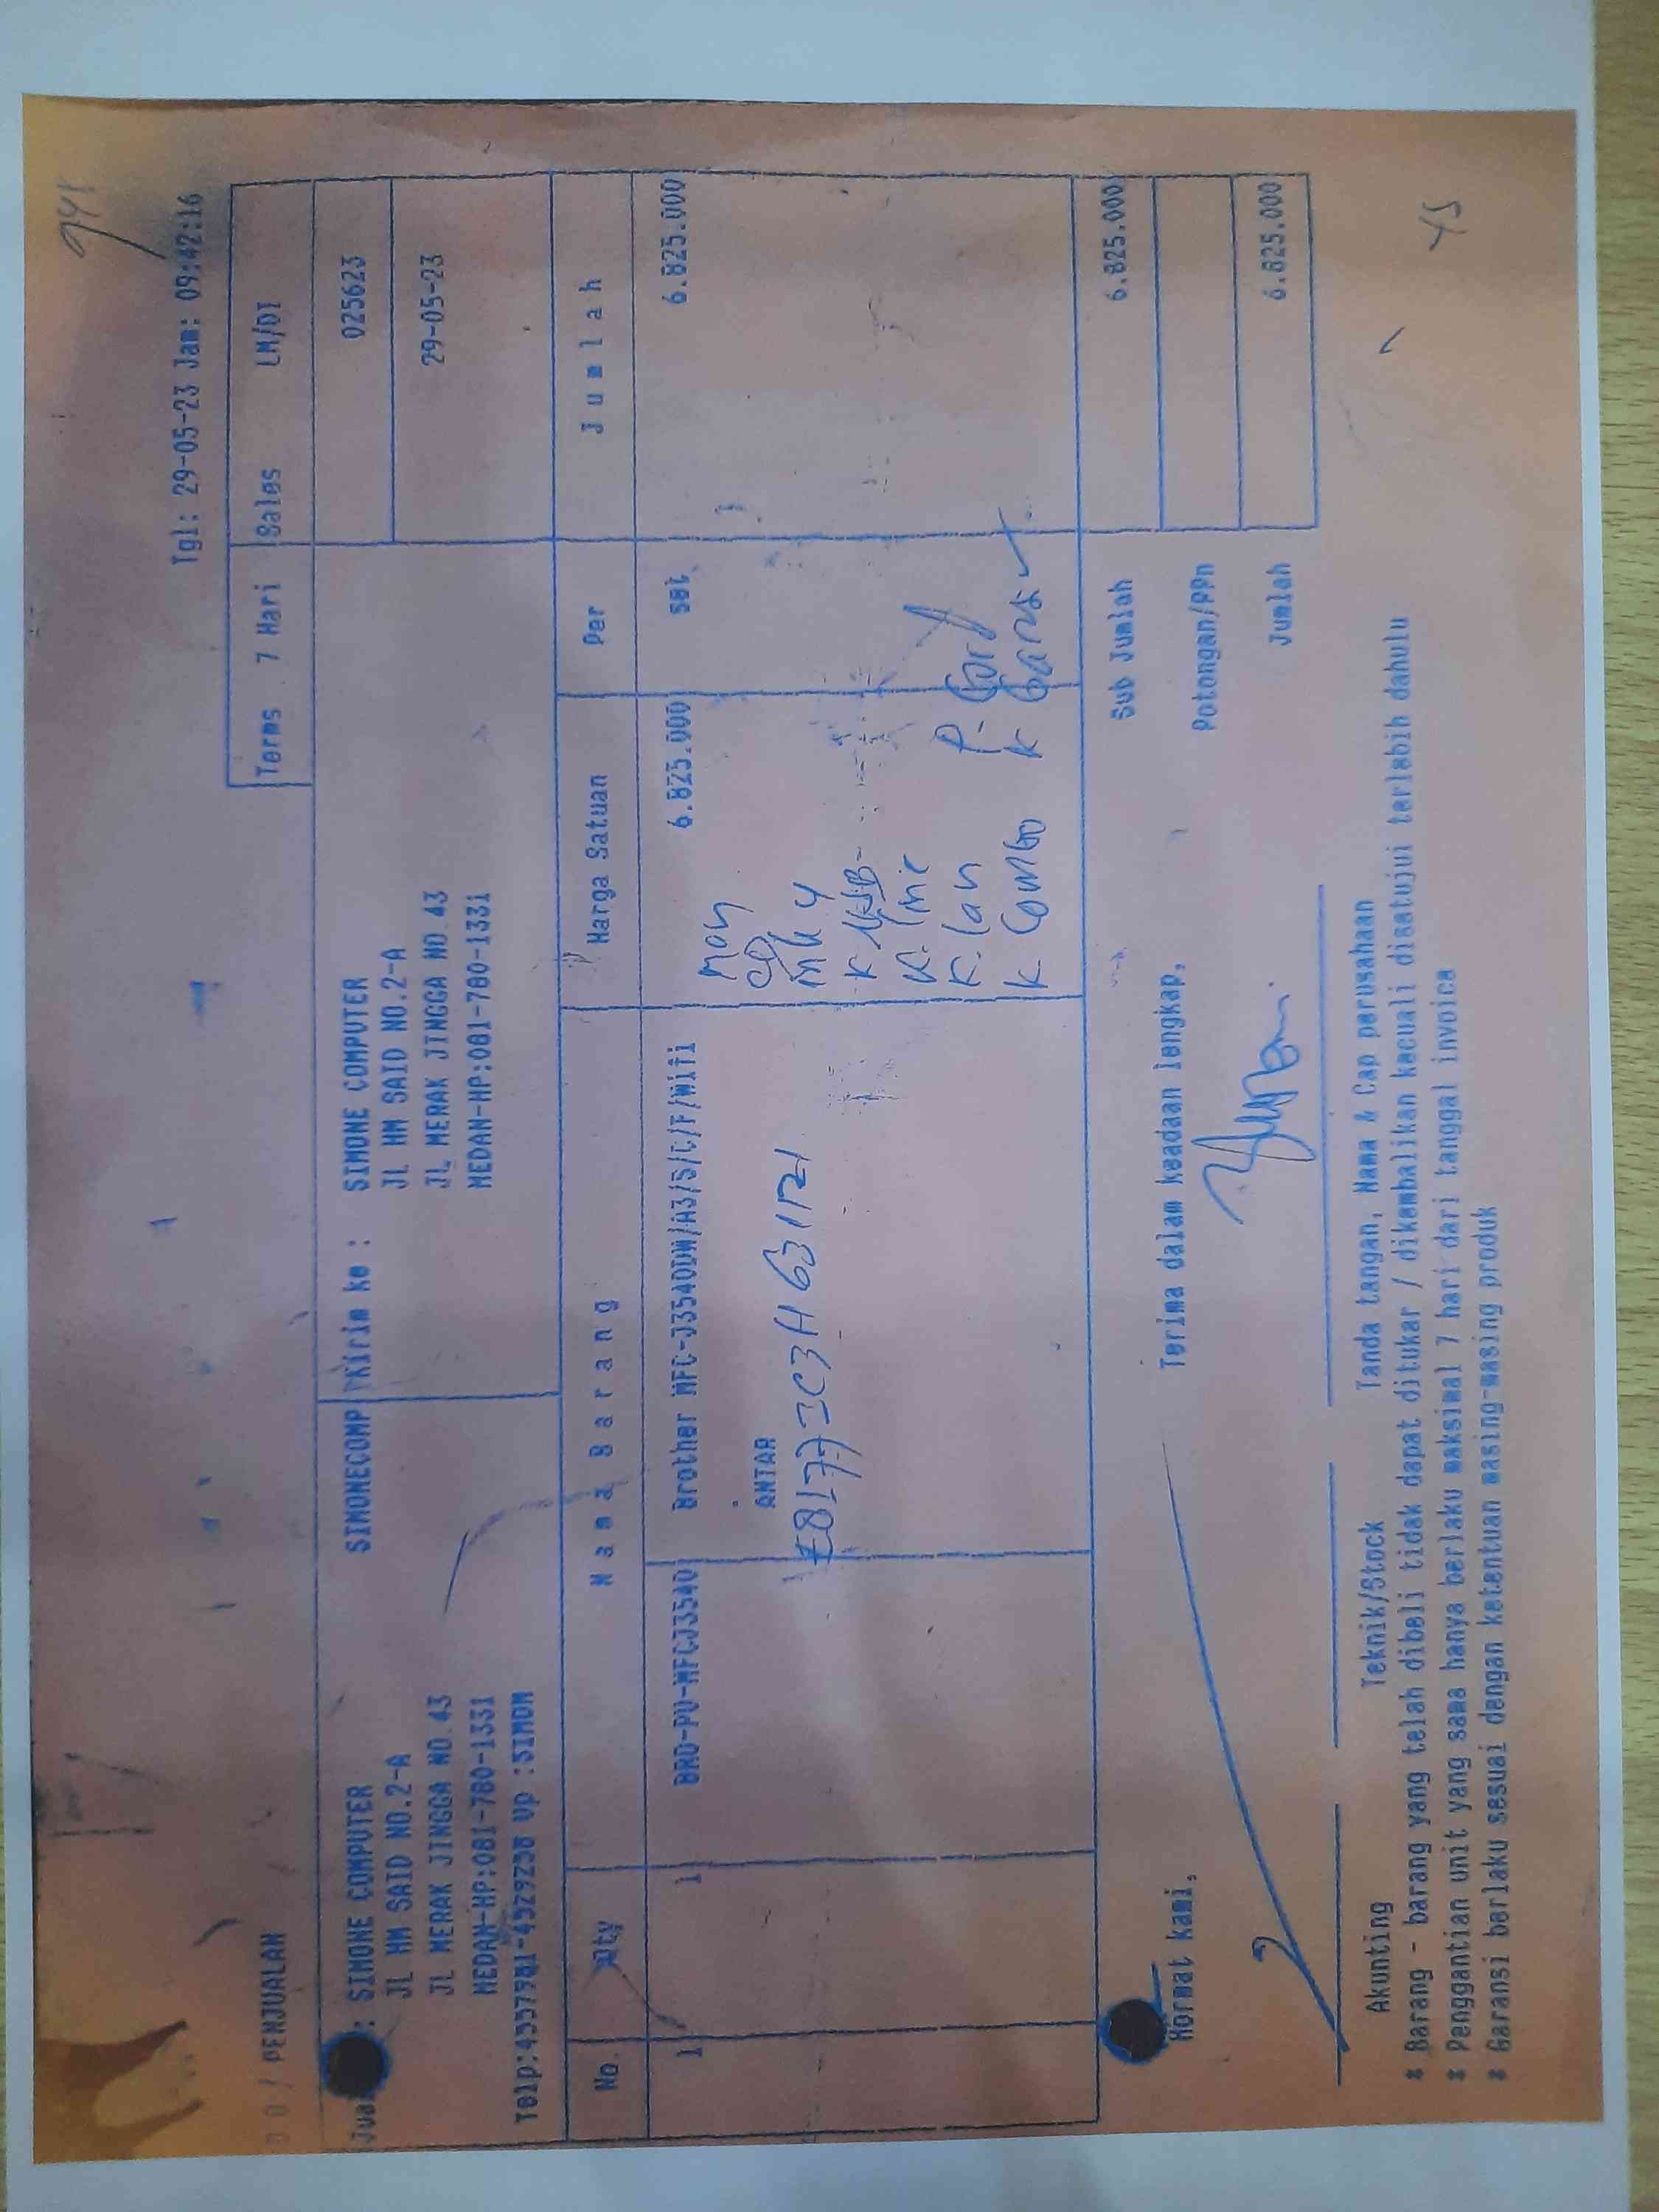 Tgl: 29-05-23 Jam: 09:42:16
Terms 7 Hari Sales LM/DI
/ PENJUALAN
: SIMONE COMPUTER SIMONECOMP Kirim ke : SIMONE COMPUTER 025623
JL HM SAID NO.2-A JL HM SAID NO.2-A
JL MERAK JINGGA NO.43 JL MERAK JINGGA NO.43 29-05-23
MEDAN-HP:081-780-1331 MEDAN-HP:081-780-1331
Up :SIMON
No. Qty N a m a B a r a n g Harga Satuan Per J u m l a h
1 1 BRO-PU-MFCJ3540 Brother MFC-J3540DW/A3/S/C/F/Wifi 6.825.000 set 6.825.000
ANTAR
CD
K. USB
K. line
K. lan P-
K. Combo K Garansi
Sub Jumlah 6.825.000
Hormat kami, Terima dalam keadaan lengkap,
Potongan/PPn
Jumlah 6.825.000
Akunting Teknik/Stock Tanda tangan, Nama & Cap perusahaan
* Barang - barang yang telah dibeli tidak dapat ditukar / dikembalikan kecuali disetujui terlebih dahulu
* Penggantian unit yang sama hanya berlaku maksimal 7 hari dari tanggal invoice
* Garansi berlaku sesuai dengan ketentuan masing-masing produk